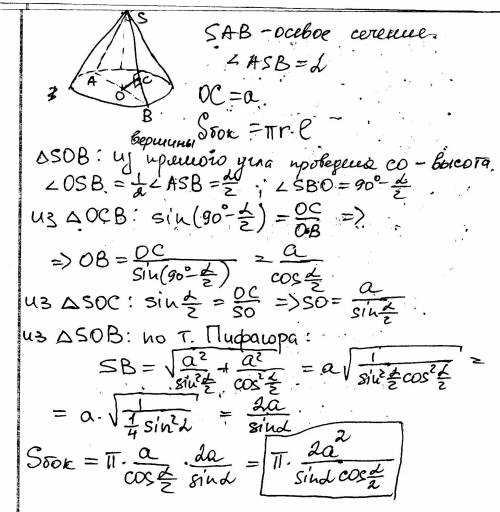 S
A
C
O
B
SAB - осевое сечение.
∠ASB = α
OC = a
Sбок = πr·l
вершины
△SOB: из прямого угла проведена CO - высота.
∠OSB = 1/2 ∠ASB = α/2 ; ∠SBO = 90° - α/2
из △OCB: sin(90° - α/2) = OC/OB =>
=> OB = OC/sin(90° - α/2) = a/cos α/2
из △SOC: sin α/2 = OC/SO => SO = a/sin α/2
из △SOB: по т. Пифагора:
SB = √(a²/sin² α/2 + a²/cos² α/2) = a√(1/(sin² α/2 cos² α/2)) =
= a·√(1/(1/4 sin² α)) = 2a/sin α
Sбок = π · a/cos α/2 · 2a/sin α = π · 2a²/(sin α cos α/2)